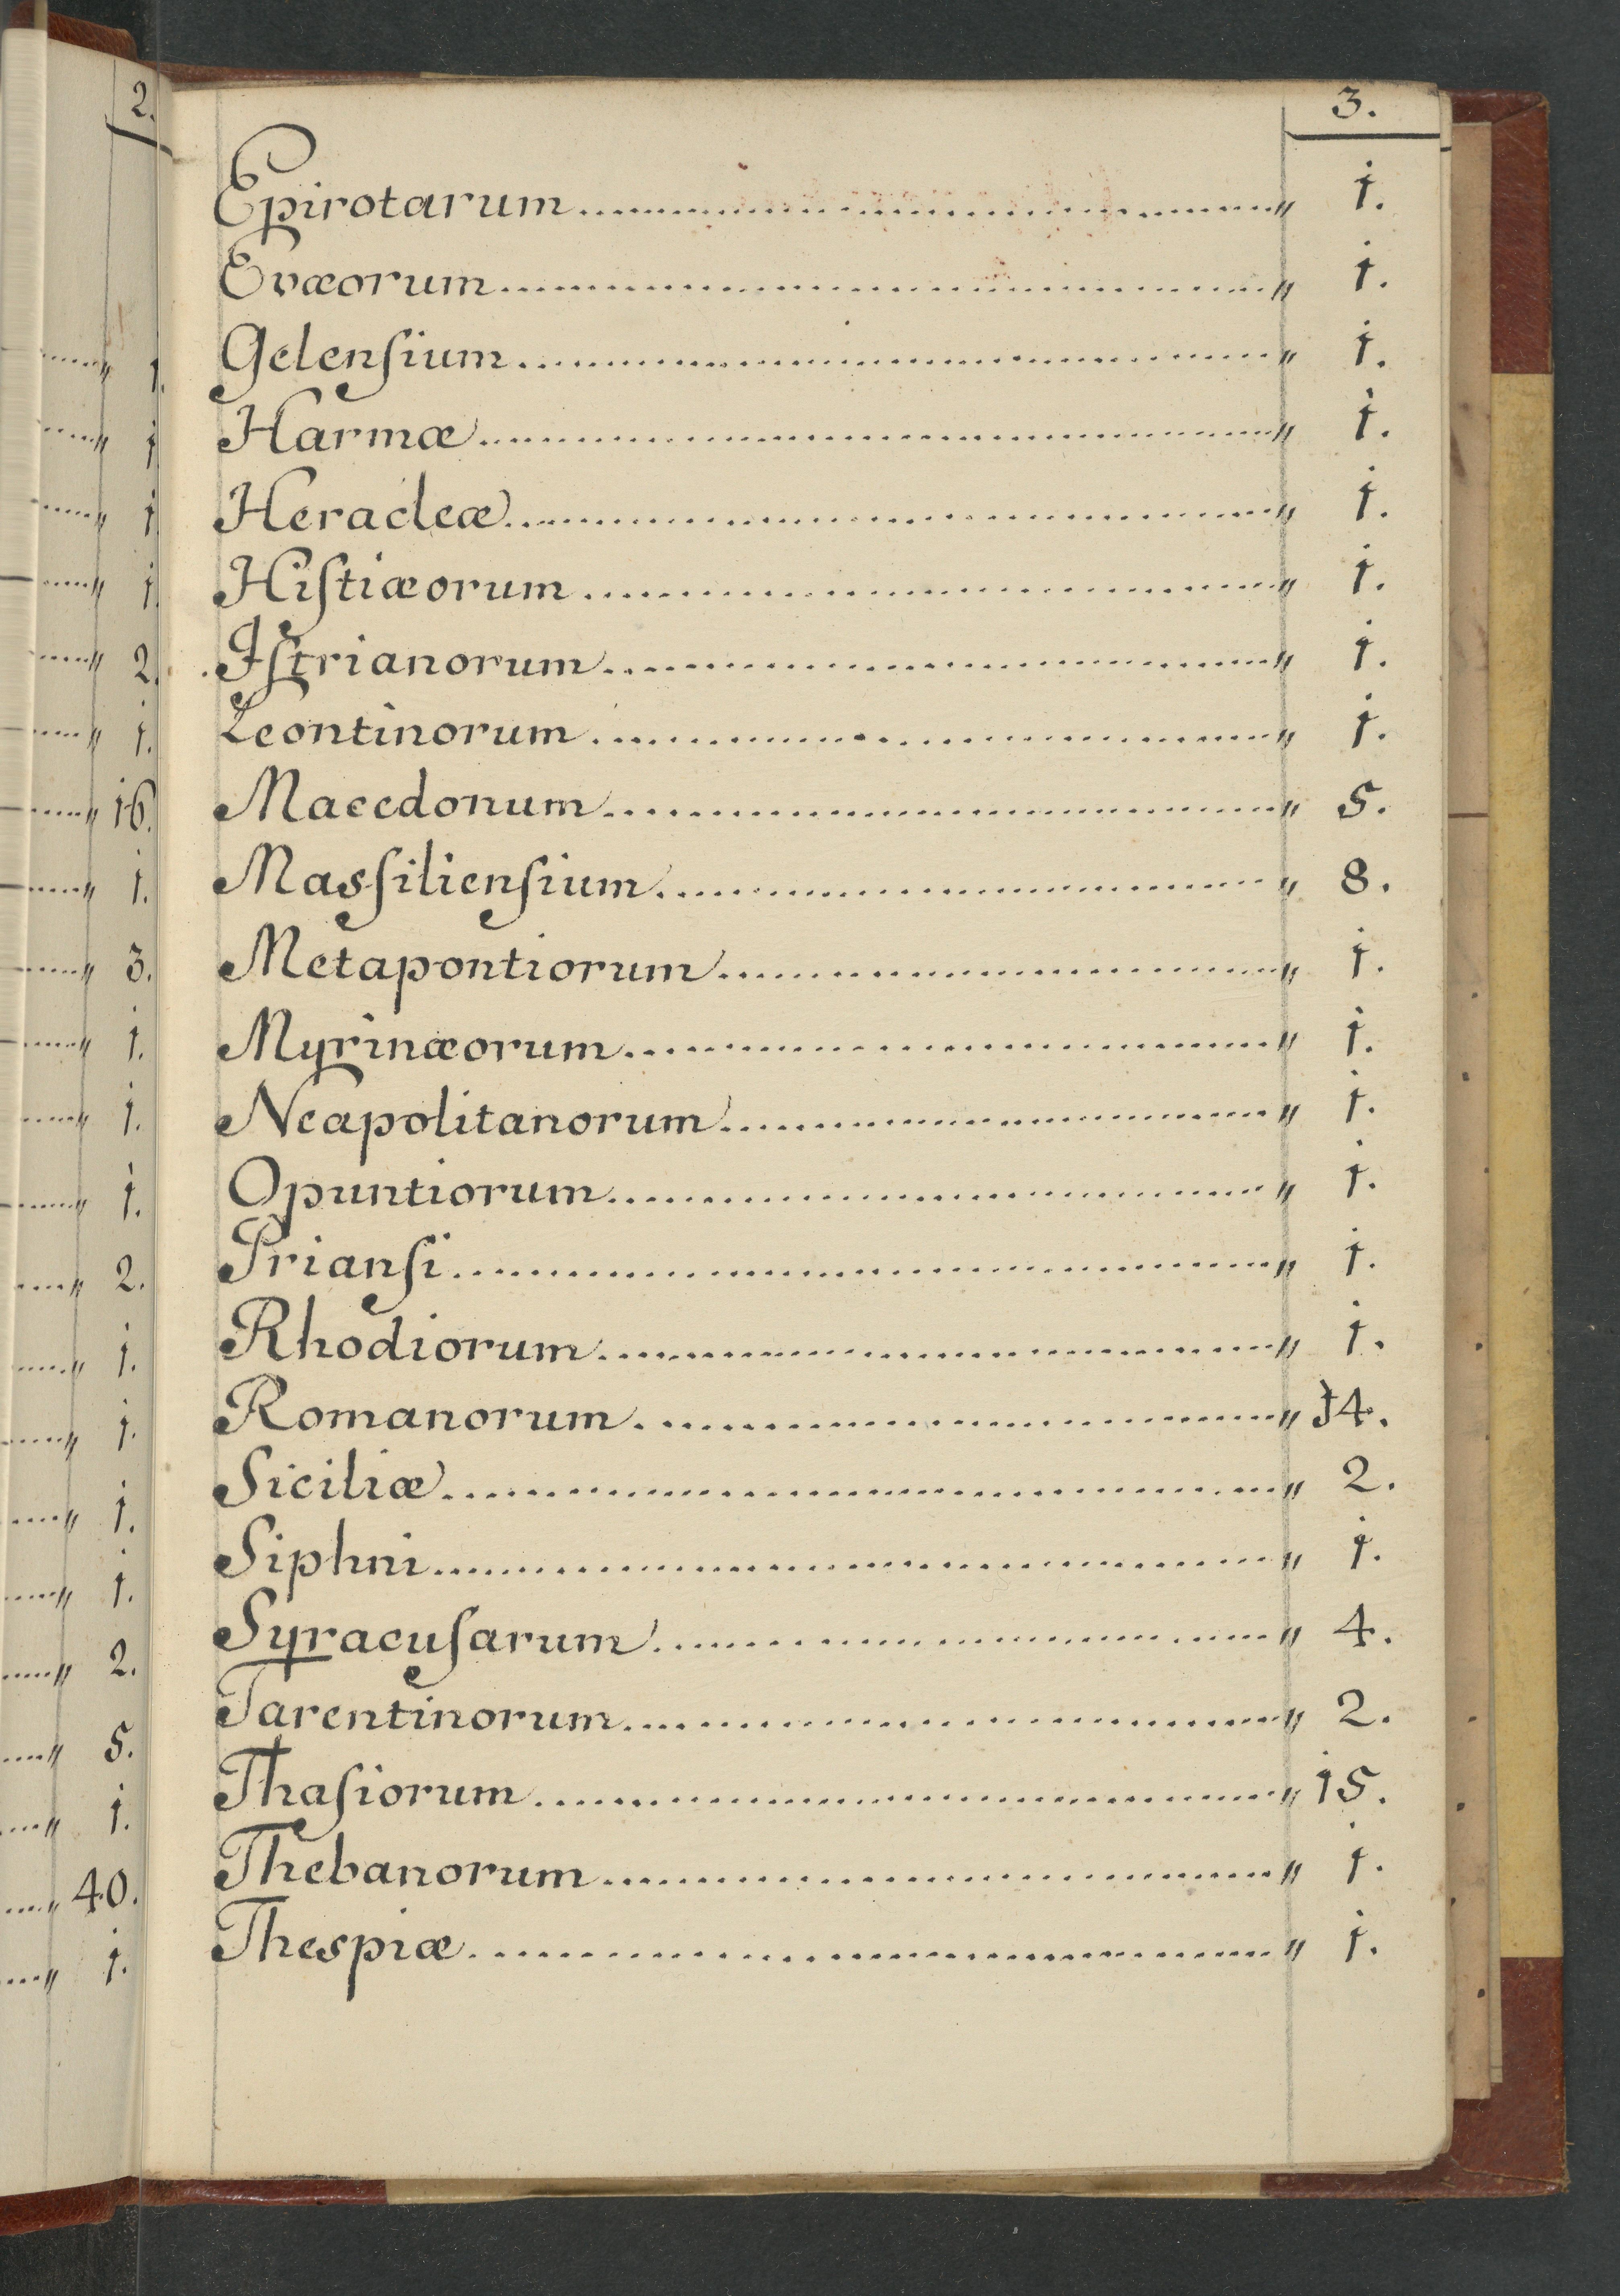 2.
1.
1
1
1.
2.
1.
16.
1.
3.
1.
1.
1.
2.
1.
1.
1.
1.
2.
5.
1.
40.
1.
3.
Epirotarum „ 1.
Evæorum „ 1.
Gelenſium „ 1.
Harmæ „ 1.
Heracleæ „ 1.
Hiſtiæorum „ 1.
Iſtrianorum „ 1.
Leontinorum „ 1.
Macedonum „ 5.
Masſilienſium „ 8.
Metapontiorum „ 1.
Myrinæorum „ 1.
Neapolitanorum „ 1.
Opuntiorum „ 1.
Prianſi „ 1.
Rhodiorum „ 1.
Romanorum „ 14.
Siciliæ „ 2.
Siphni „ 1.
Syracuſarum „ 4.
Tarentinorum „ 2.
Thaſiorum „ 15.
Thebanorum „ 1.
Thespiæ „ 1.